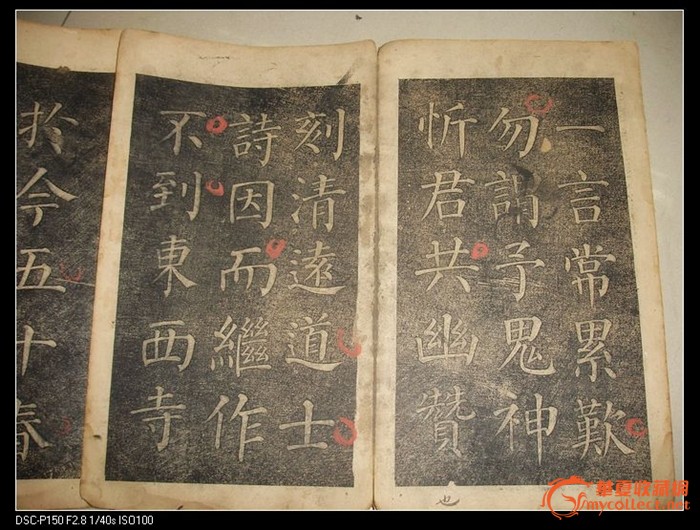 一言常累歎
勿謂予鬼神
忻君共幽贊
也
刻清遠道士
詩因而繼作
不到東西寺
扵今五十春
DSC-P150 F2.8 1/40s ISO100
華夏收藏網
mycollect.net